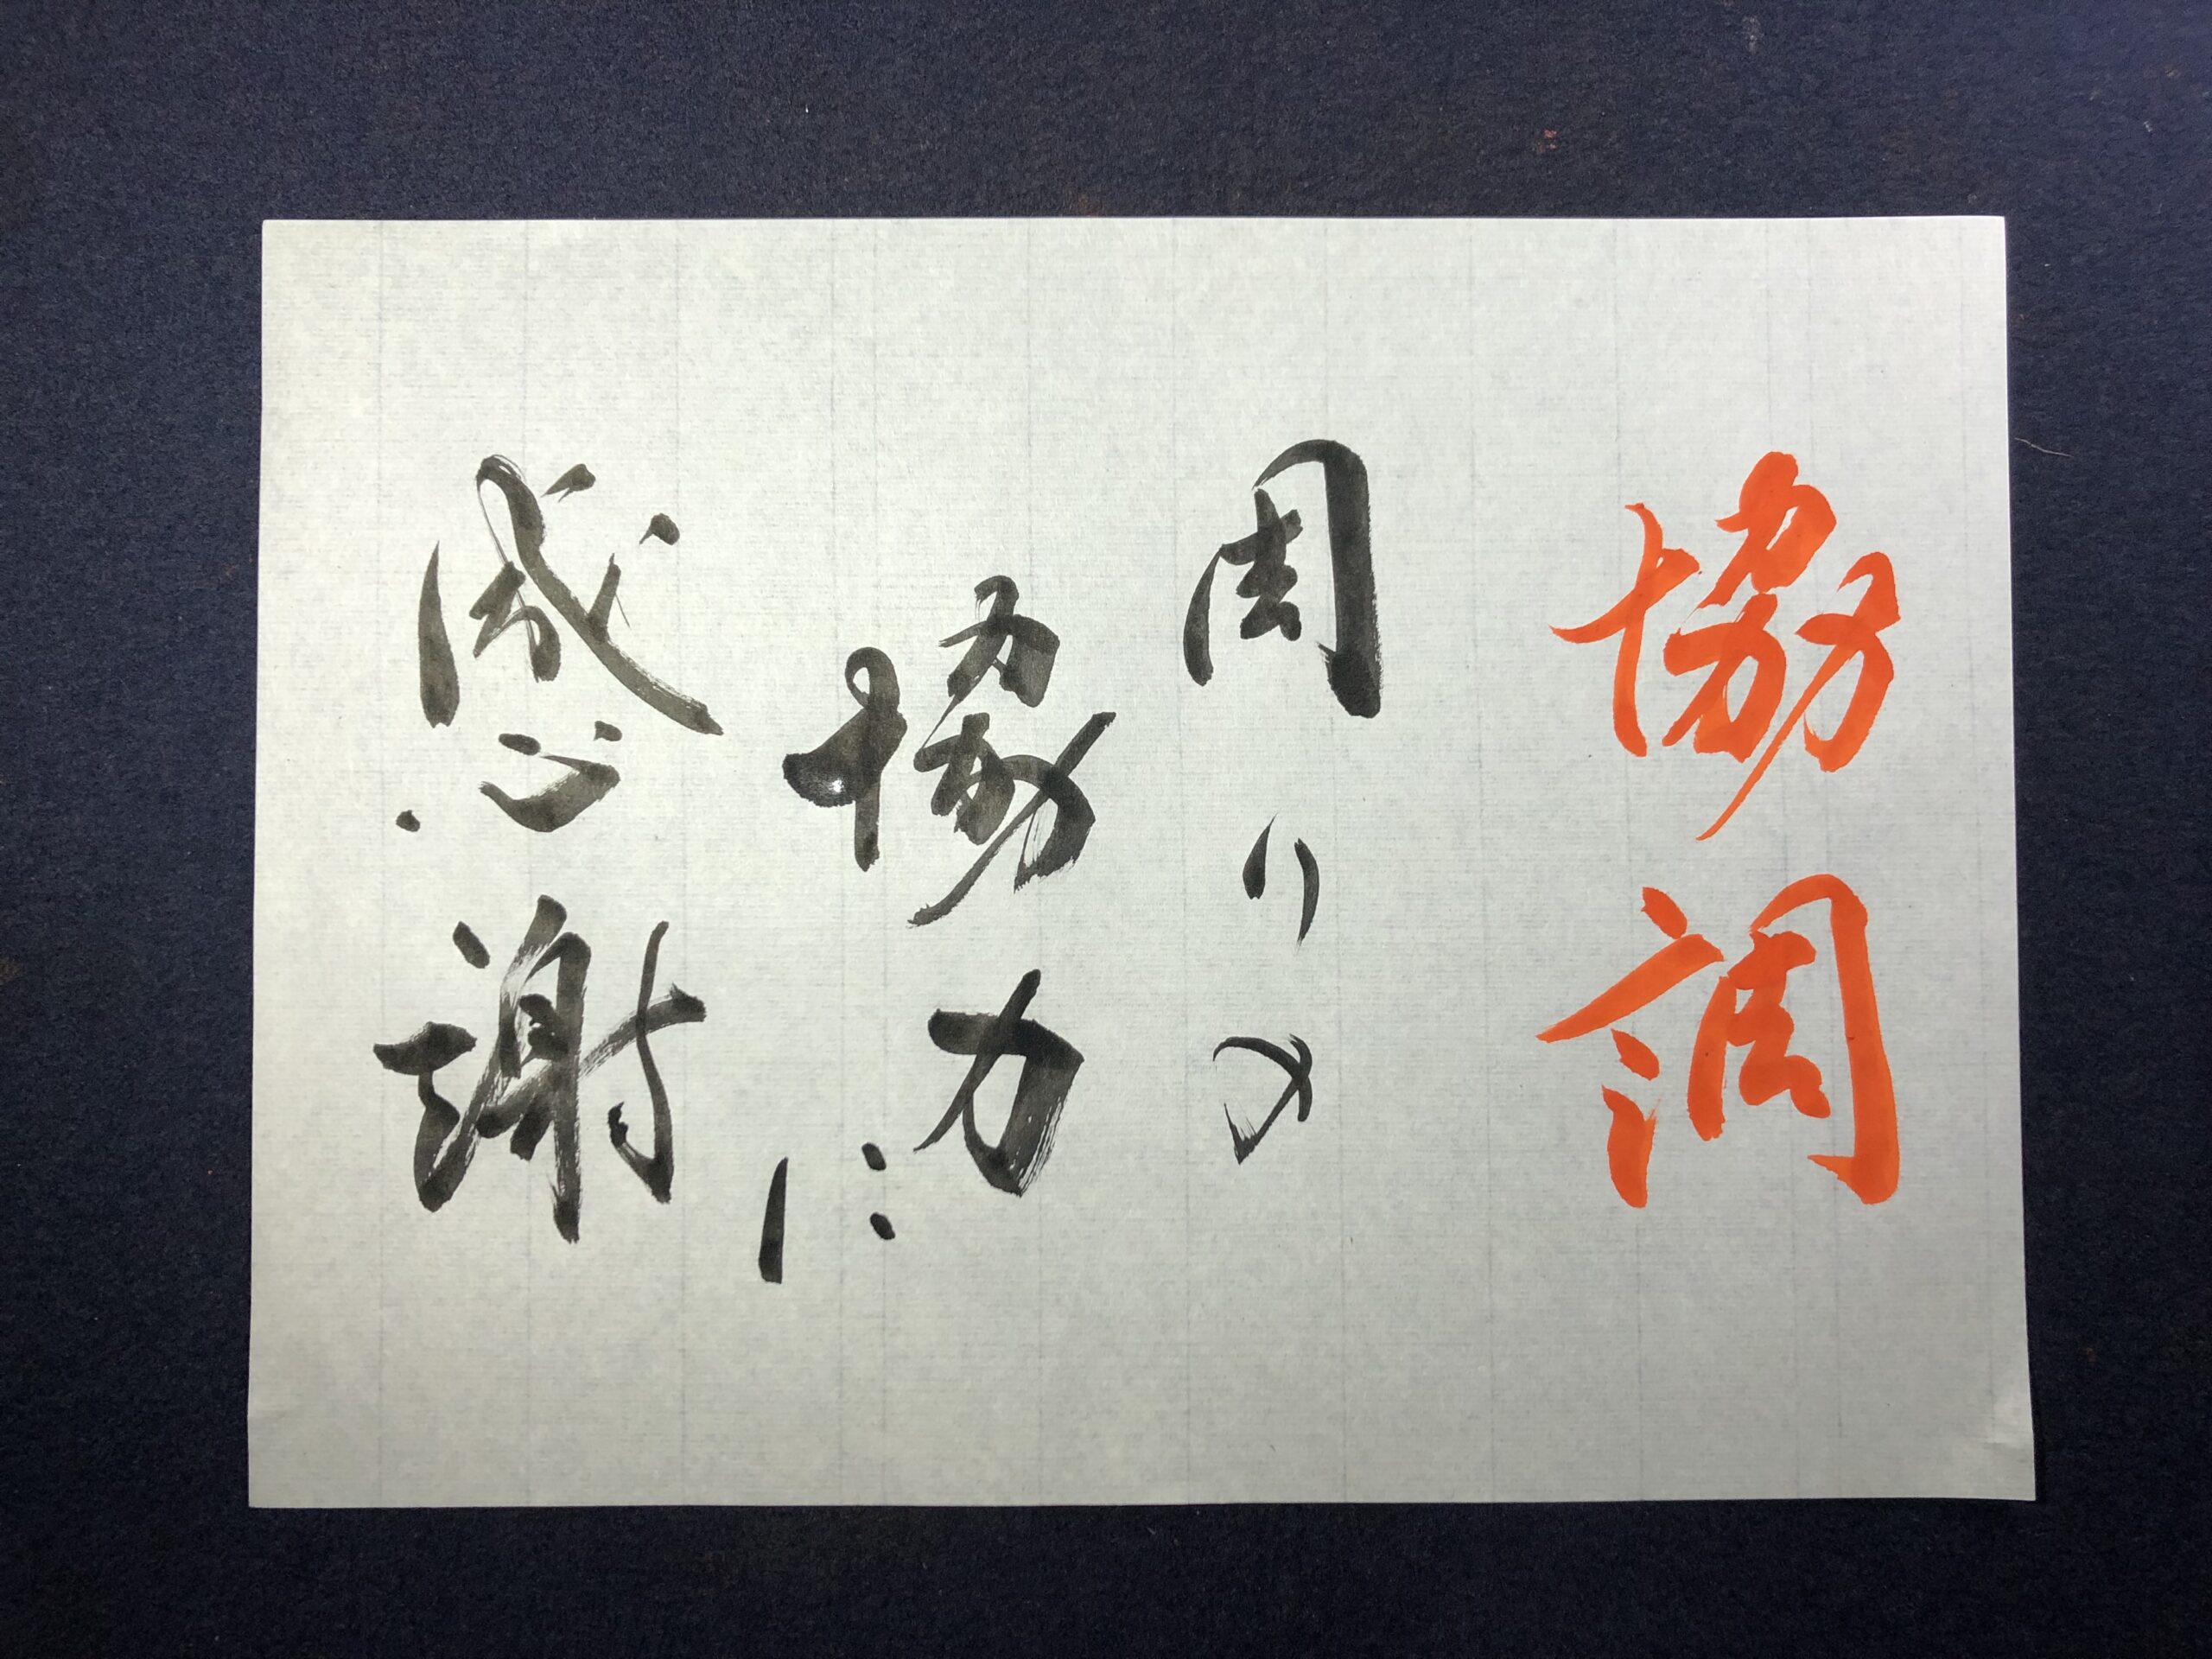 協調
周りの
協力に
感謝